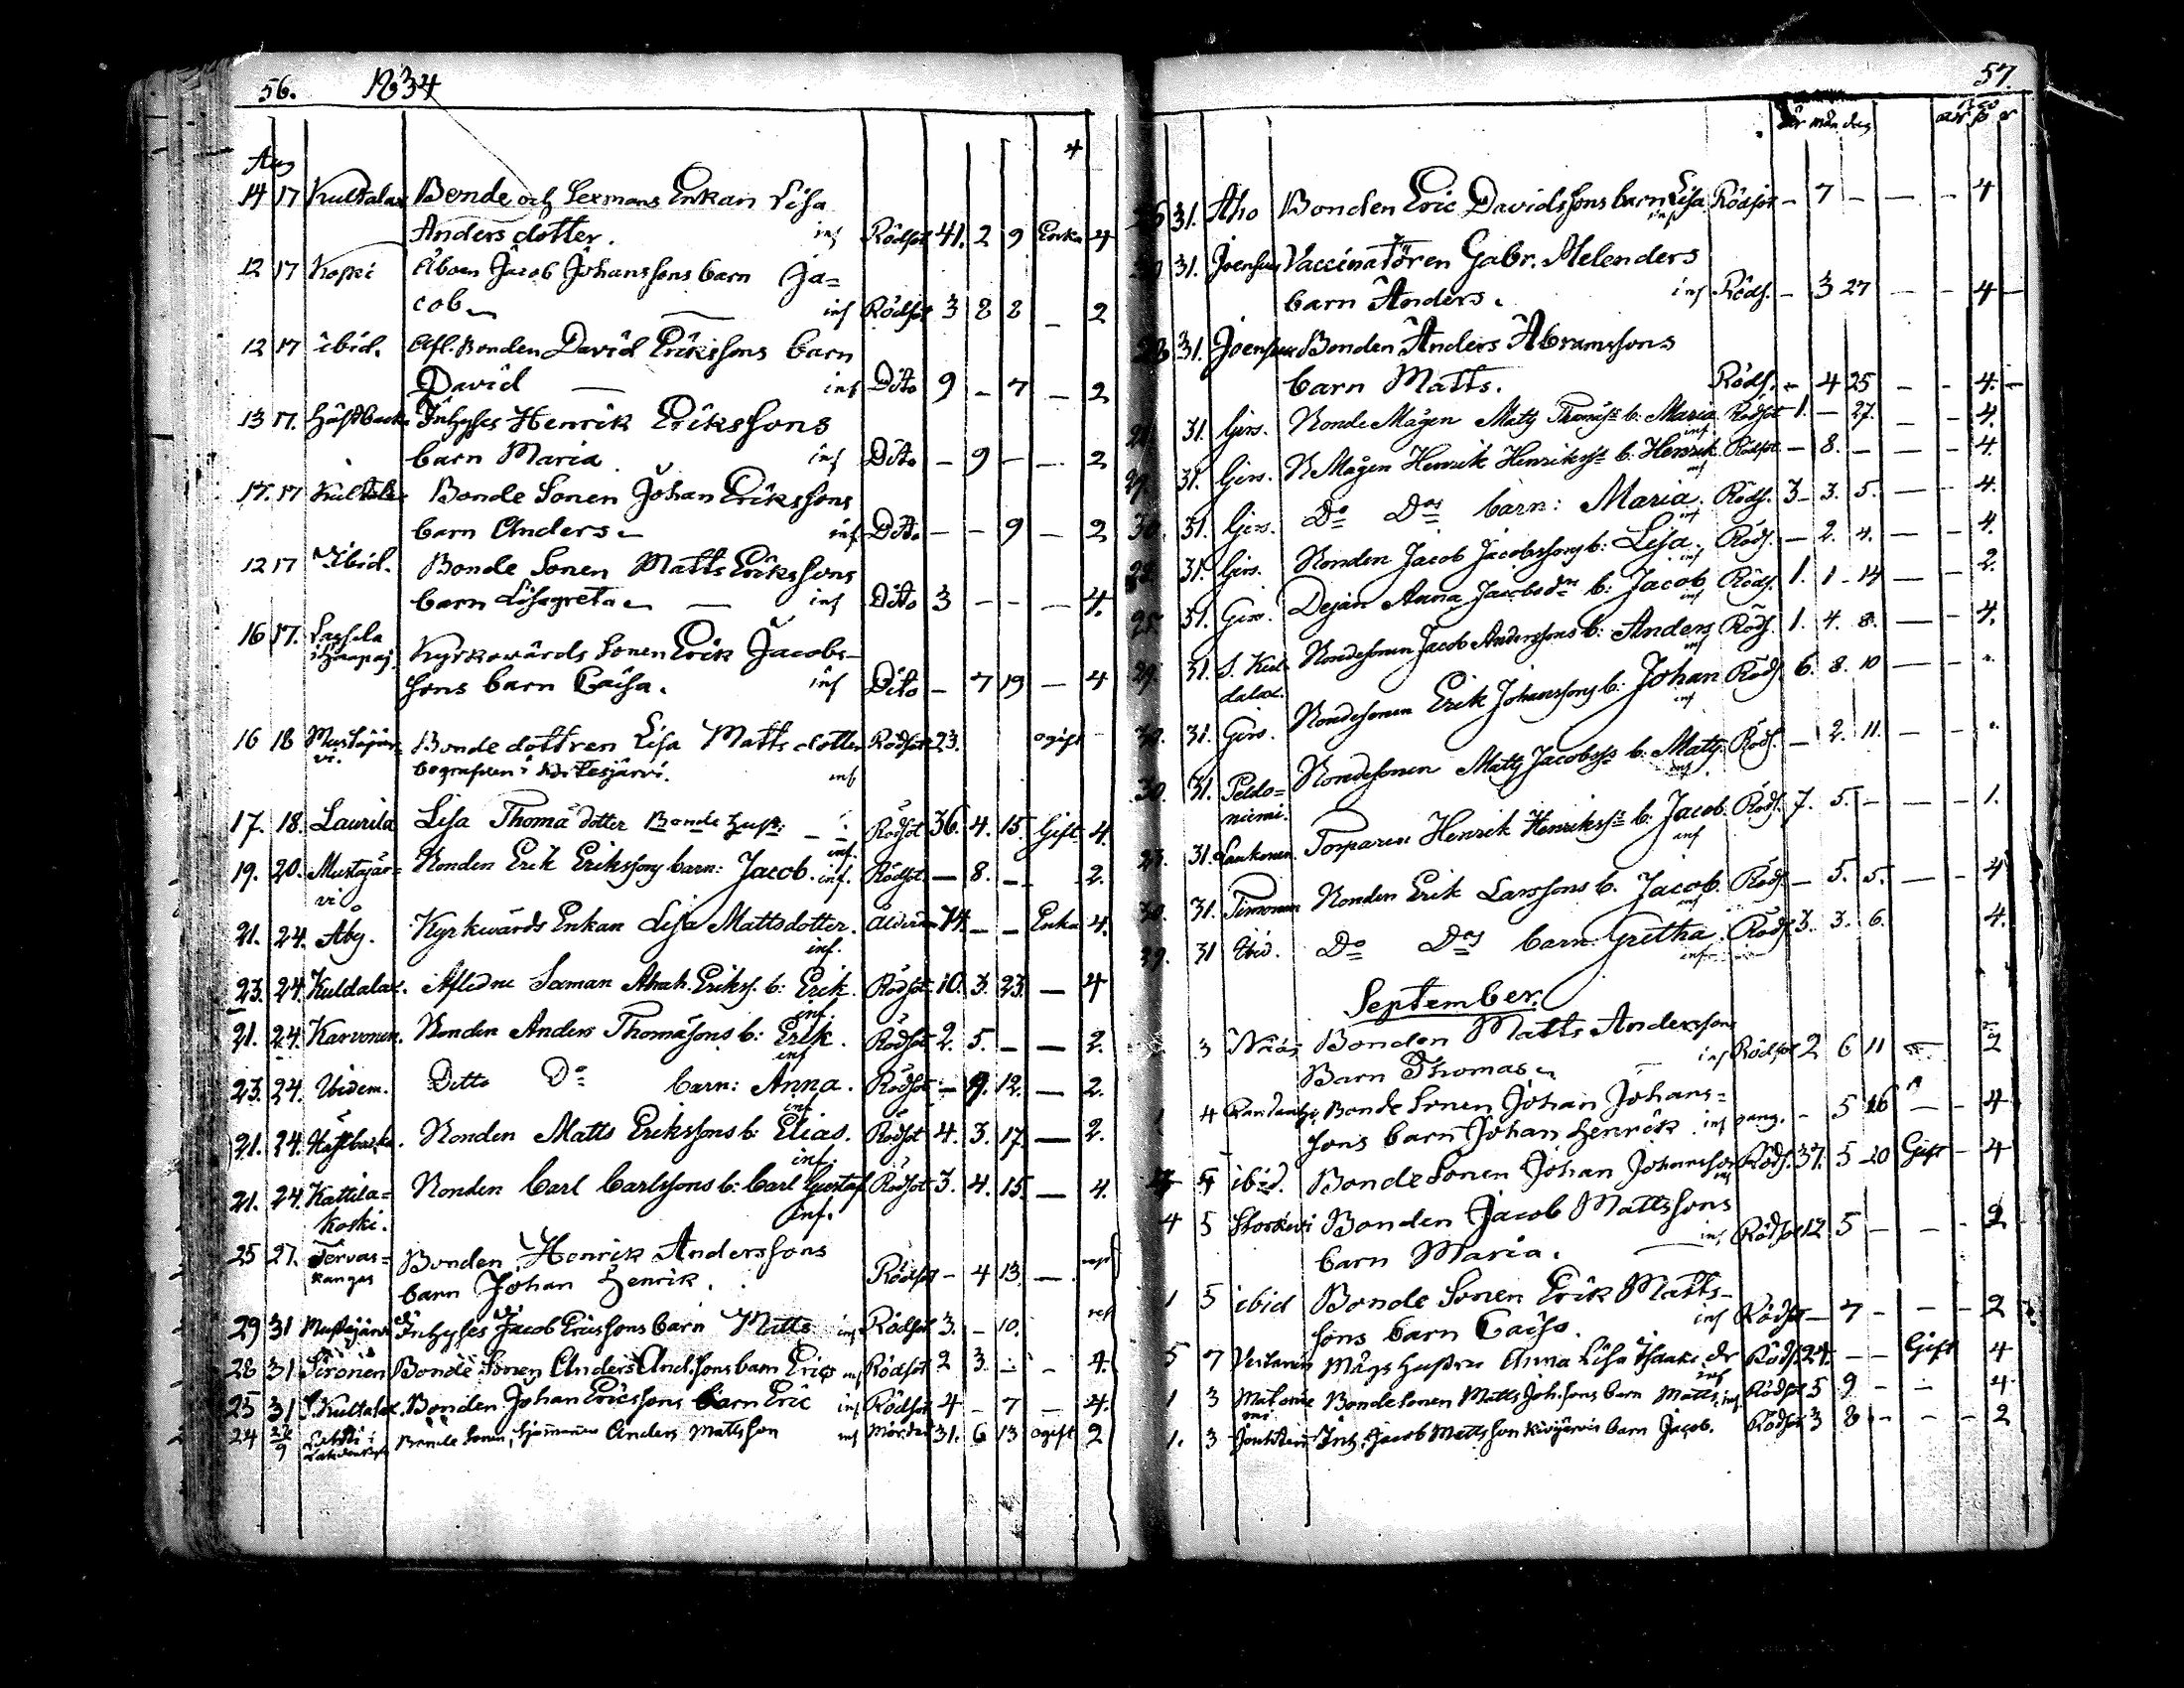 56. 1834
Aug
14 17 Kultalax Bonde och Sexmans Enkan Lisa
Anders dotter. inf Rödsot 41. 2 9 Enka 4
12 17 Koski Åboen Jacob Johanssons barn Ja=
cob inf Rödsot 3 8 8 – 2
12 17 ibid. Afl. Bonden David Erikssons barn
David — inf Dito 9 – 7 – 2
13 17. Häftbacka Inhyses Henrik Erikssons
barn Maria inf Dito – 9 – – 2
17. 17 Kultalax Bonde Sonen Johan Erikssons
barn Anders inf Dito – – 9 – 2
12 17 Ibid. Bonde Sonen Matts Erikssons
barn Lisagreta — inf Dito 3 – – – 4.
16 17. Lassila
Kyrkowärds Sonen Erik Jacobs-
sons barn Caisa. inf Dito – 7 19 – 4
16 18 Mustajär=
vi. Bonde dottren Lisa Matts dotter Rödsot 23. ogift
begrafven i inf
17. 18. Laurila Lisa Thomä dotter Bonde hust: Rödsot 36. 4. 15. Gift 4.
inf.
19. 20. Mustajär=
vi Bonden Erik Erikssons barn: Jacob. inf. Rödsot – 8. – 2.
21. 24. Aby. Kyrkwärds Enkan Lisa Mattsdotter. Ålderdom 74. – – Enka 4.
inf.
23. 24. Kuldalax. Aflidne Saman Abrah. Erikss. b: Erik. Rödsot 10. 3. 23. – 4
inf.
21. 24. Karvonen. Bonden Anders Thomäsons b: Erik. Rödsot 2. 5. – – 2.
inf
23. 24. Ibidem. Ditto Do barn: Anna. Rödsot – 9. 12. – 2.
inf
21. 24. Häftbacka. Bonden Matts Erikssons b: Elias. Rödsot 4. 3. 17. – 2.
inf.
21. 24. Kattila=
koski. Bonden Carl Carlssons b: Carl Gustaf Rödsot 3. 4. 15. – 4.
inf.
25 27. Tervas=
kangas Bonden Henrik Anderssons
barn Johan Henrik. Rödsot – 4 13. –
29 31 Mustajärvi Inhyses Jacob Ericssons barn Matts inf Rödsot 3. – 10.
28 31 Sironen Bonde Sonen Anders And.sons barn Eric inf Rödsot 2 3. – – 4.
25 31 S. Kultalax. Bonden Johan Ericssons barn Eric inf Rödsot 4 – 7 – 4.
24 Bonde Sonen, Anders Mattsson inf Mördad 31. 6 13 ogift 2
57.
år mån dag
26 31. Aho Bonden Eric Davidssons barn Lisa Rödsot – 7 – – – 4
inf
31. Joensuu Vaccinatören Gabr. Melenders
barn Anders. inf Röds. – 3 27 – – 4 –
28 31. Joensuu Bonden Anders Abramssons
barn Matts. Röds. – 4 25 – – 4. –
31. Girs. Bonde Mågen Matts Thomäss b: Maria Rödsot 1. – 27. – 4.
inf.
29. 31. Girs. B Mågen Henrik Henrikss b: Henrik Rödsot – 8. – – – 4.
inf
30. 31. Girs. Do Dos barn: Maria. Röds. 3 – 3. 5. – – 4.
inf
31. Girs. Bonden Jacob Jacobssons b: Lisa. Röds. – 2. 4. – – 4.
inf
25. 31. Girs. Dejan Anna Jacobsdr b: Jacob Röds. 1. 1 – 14 – – 2.
inf
29. 31. S. Kul
dalax. Bondesonen Jacob Anderssons b: Anders Röds. 1. 4. 8. – – 4.
inf
30. 31. Girs. Bondesonen Erik Johanssons b: Johan Röds. 6. 8. 10 – –
inf
30. 31. Peldo=
niemi. Bondesonen Matts Jacobss b: Matts Röds. – 2. 11. – –
inf
23. 31. Laukonen Torparen Henrik Henrikss b: Jacob. Röds. 7. 5. – – – 1.
inf
30. 31. Timonen Bonden Erik Larssons b. Jacob. Röds. – 5. 5. – – 4
inf
29. 31 Ibid. Do Dos barn Gretha. Röds. 3. 3. 6. 4.
inf
September.
3 Nääs Bonden Matts Anderssons
Barn Thomas inf Rödsot 2 6 11 2
1 4 Bonde Sonen Johan Johans=
sons barn Johan Henrik. inf – 5 26 – – 4
4 ibid. Bonde Sonen Johan Johansson Röds. 37. 5 20 Gift – 4
inf
4 5 Bonden Jacob Mattssons
barn Maria. inf Rödsot 12 5 – – – 2
1 5 ibid Bonde Sonen Erik Matts-
sons barn Caisa. inf Rödsot – 7 – – – 2
5 7 Mågs hustru Anna Lisa Isaks dr Röds. 24. – – Gift 4
inf
1 3 Bonde Sonen Matts Joh.sons barn Matts. inf Rödsot 5 9 – – 4
1. 3 Inh. Jacob Mattsson Kivijärvis barn Jacob. Rödsot 3 8 – – – 2